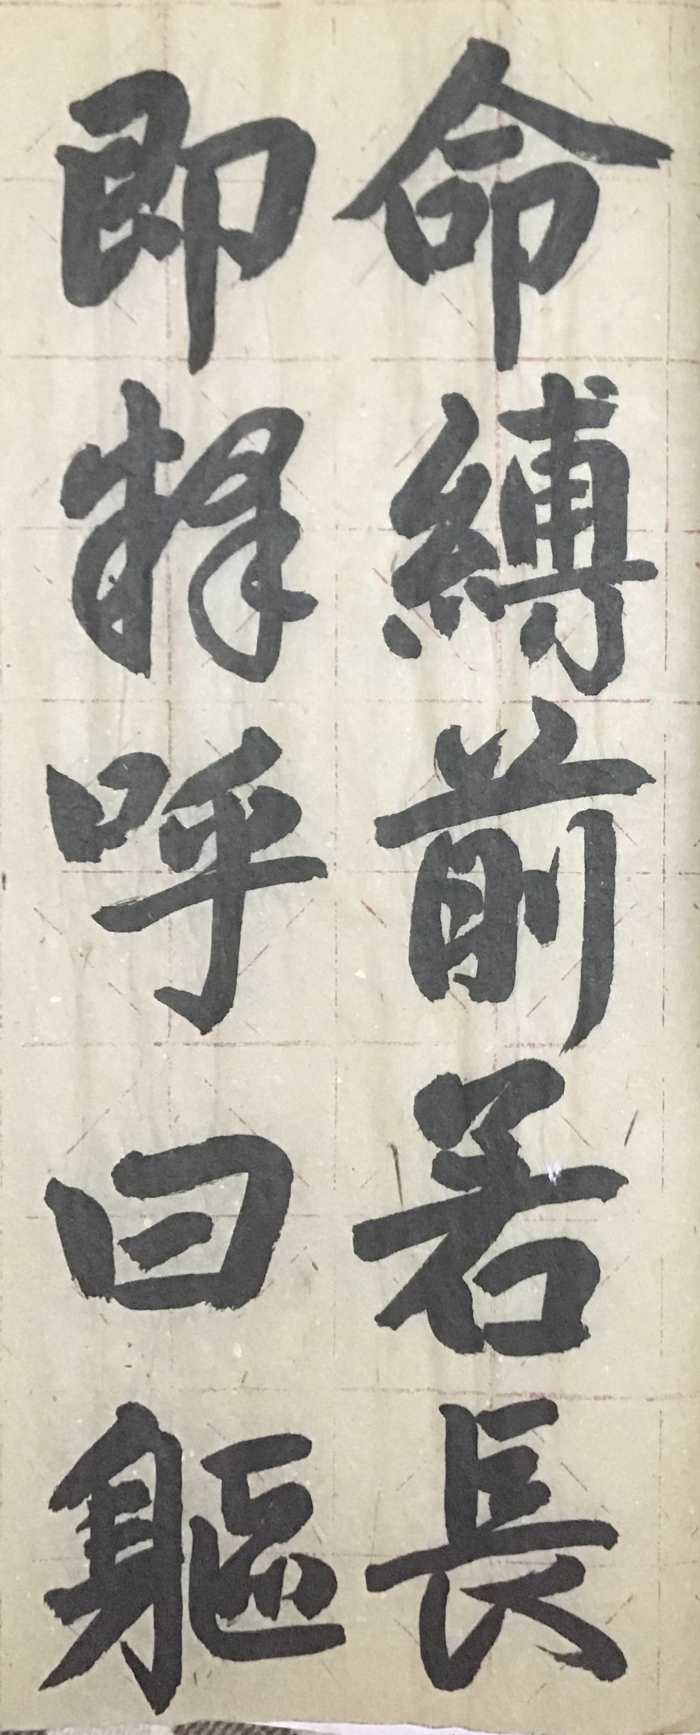 命縛前若長
即釋呼曰軀